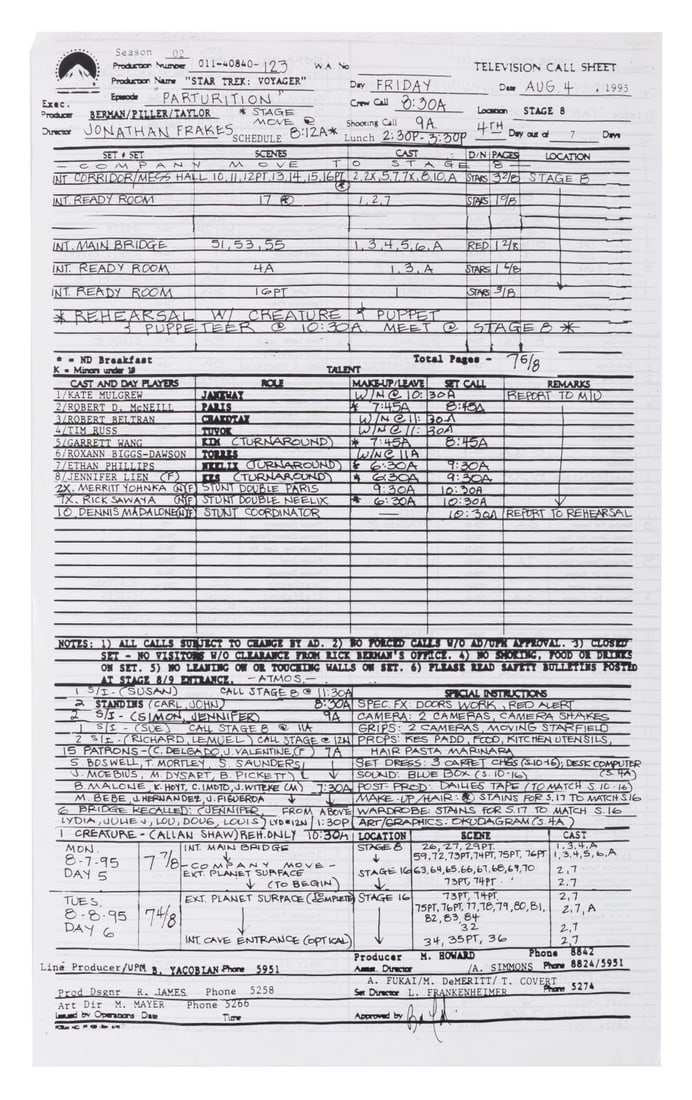 Season 02
Production Number 011-40840-123 W.A. No
TELEVISION CALL SHEET
Production Name "STAR TREK: VOYAGER"
Day FRIDAY Date AUG 4, 1995
Episode "PARTURITION"
Crew Call 8:30A
Exec. Producer BERMAN/PILLER/TAYLOR * STAGE MOVE @
Shooting Call 9A Location STAGE 8
Director JONATHAN FRAKES SCHEDULE 8:12A*
Lunch 2:30P-3:30P 4TH Day out of 7 Days
SET # SET SCENES CAST D/N PAGES LOCATION
- COMPANY MOVE TO STAGE 8 -
INT CORRIDOR/MESS HALL 10, 11, 12PT, 13, 14, 15, 16PT 2, 2X, 5, 7, 7X, 8, 10, A STARS 3 2/8 STAGE 8
INT. READY ROOM 17 1, 2, 7 STARS 1 9/8
INT. MAIN BRIDGE 51, 53, 55 1, 3, 4, 5, 6, A RED 1 2/8
INT. READY ROOM 4A 1, 3, A STARS 1 6/8
INT. READY ROOM 16PT 1 STARS 3/8
* REHEARSAL W/ CREATURE & PUPPET
& PUPPETEER @ 10:30A. MEET @ STAGE 8 *
* = ND Breakfast Total Pages - 7 5/8
K = Minors under 18 TALENT
CAST AND DAY PLAYERS ROLE MAKE-UP/LEAVE SET CALL REMARKS
1/KATE MULGREW JANEWAY W/N @ 10:30A REPORT TO M/U
2/ROBERT D. McNEILL PARIS * 7:45A 8:45A
3/ROBERT BELTRAN CHAKOTAY W/N @ 11:30A
4/TIM RUSS TUVOK W/N @ 11:30A
5/GARRETT WANG KIM (TURNAROUND) * 7:45A 8:45A
6/ROXANN BIGGS-DAWSON TORRES W/N @ 11A
7/ETHAN PHILLIPS NEELIX (TURNAROUND) * 6:30A 9:30A
8/JENNIFER LIEN (F) KES (TURNAROUND) * 6:30A 9:30A
2X. MERRITT YOHNKA (N)(F) STUNT DOUBLE PARIS 9:30A 10:30A
7X. RICK SAWAYA (N)(F) STUNT DOUBLE NEELIX * 6:30A 10:30A
10. DENNIS MADALONE (N)(F) STUNT COORDINATOR — 10:30A REPORT TO REHEARSAL
NOTES: 1) ALL CALLS SUBJECT TO CHANGE BY AD. 2) NO FORCED CALLS W/O AD/UPM APPROVAL. 3) CLOSED
SET - NO VISITORS W/O CLEARANCE FROM RICK BERMAN'S OFFICE. 4) NO SMOKING, FOOD OR DRINKS
ON SET. 5) NO LEANING ON OR TOUCHING WALLS ON SET. 6) PLEASE READ SAFETY BULLETINS POSTED
AT STAGE 8/9 ENTRANCE. - ATMOS. -
1 S/I - (SUSAN) CALL STAGE 8 @ 11:30A SPECIAL INSTRUCTIONS
2 STANDINS (CARL, JOHN) 8:30A SPEC. FX: DOORS WORK, RED ALERT
2 S/I - (SIMON, JENNIFER) 9A CAMERA: 2 CAMERAS, CAMERA SHAKES
1 S/I - (SUE) CALL STAGE 8 @ 11A GRIPS: 2 CAMERAS, MOVING STARFIELD
2 S/I - (RICHARD, LEMUEL) CALL STAGE @ 12N PROPS: KES PADD, FOOD, KITCHEN UTENSILS,
15 PATRONS - (C. DELGADO, J. VALENTINE, (F) 7A HAIR PASTA MARINARA
S. BOSWELL, T. MORTLEY, S. SAUNDERS SET DRESS: 3 CARPET CHES (S.10-16); DESK COMPUTER
J. MOEBIUS, M. DYSART, B. PICKETT) SOUND: BLUE BOX (S. 10-16) (S. 4A)
B. MALONE, K. HOYT, C. IMOTO, J. WITZKE (M) 7:30A POST-PROD: DAILIES TAPE (TO MATCH S. 10-16)
M. BEBE, J. HERNANDEZ, J. FIGUERDA MAKE-UP/HAIR: STAINS FOR S.17 TO MATCH S.16
6 BRIDGE RECALLED: (JENNIFER, FROM ABOVE WARDROBE: STAINS FOR S.17 TO MATCH S.16
LYDIA, JULIE J, LOU, DOUG, LOUIS) LYD@12N 1:30P ART/GRAPHICS: OKUDAGRAM (S. 4A)
1 CREATURE - (ALLAN SHAW) REH. ONLY 10:30A LOCATION SCENE CAST
MON. 8-7-95 DAY 5 7 7/8 INT. MAIN BRIDGE STAGE 8 26, 27, 29PT. 1, 3, 4, A
59, 72, 73PT, 74PT, 75PT, 76PT 1, 3, 4, 5, 6, A
- COMPANY MOVE -
EXT. PLANET SURFACE STAGE 16 63, 64, 65, 66, 67, 68, 69, 70 2, 7
(TO BEGIN) 73PT, 74PT. 2, 7
TUES. 8-8-95 DAY 6 7 4/8 EXT. PLANET SURFACE (TO COMPLETE) STAGE 16 73PT, 74PT. 2, 7
75PT, 76PT, 77, 78, 79, 80, 81, 2, 7, A
82, 83, 84
32 2, 7
INT. CAVE ENTRANCE (OPTICAL) 34, 35PT, 36 2, 7
Producer M. HOWARD Phone 8842
Line Producer/UPM B. YACOBIAN Phone 5951
Assist. Director /A. SIMMONS Phone 8824/5951
A. FUKAI/M. DeMERITT/ T. COVERT
Prod Dsgnr R. JAMES Phone 5258
Set Director L. FRANKENHEIMER Phone 5274
Art Dir M. MAYER Phone 5266
Issued by Operations Date Time
Approved by